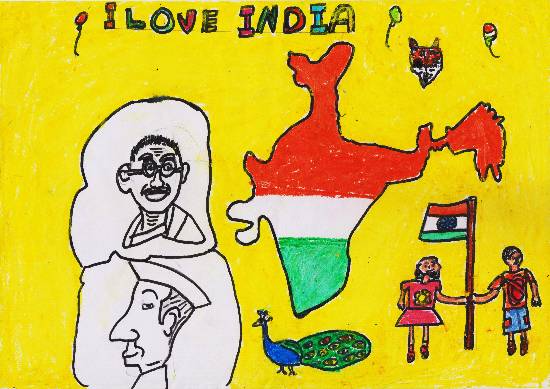 I LOVE INDIA